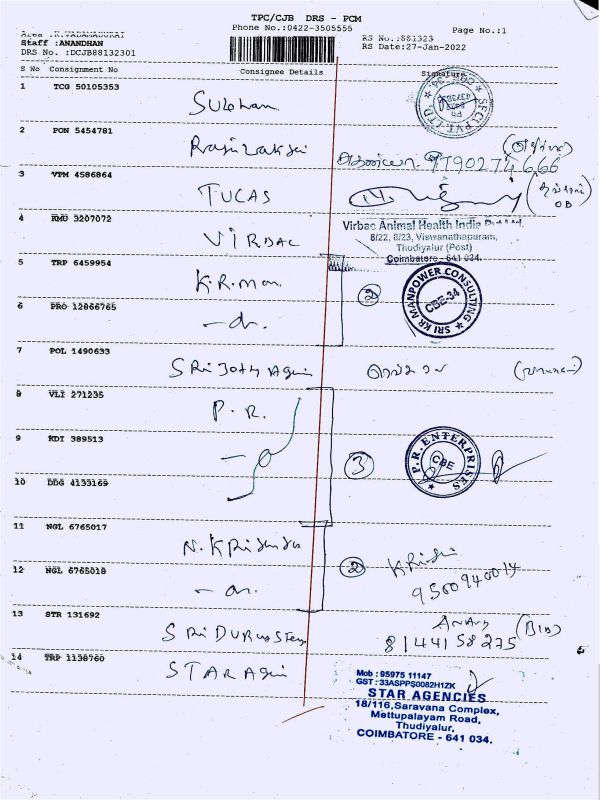 TPC/CJB DRS - PCM
Phone No.:0422-3505555
Page No.:1
Area :K.VADAMADURAI
Staff :ANANDHAN
RS No.:881323
DRS No. :DCJB88132301
RS Date:27-Jan-2022
S No Consignment No Consignee Details Signature
1 TCG 50105353
2 PON 5454781
9790274666
3 VPM 4586864 TUCAS
4 KMU 3207072 VIRBAC
Virbac Animal Health India
8/22, 8/23, Viswanathapuram,
Thudiyalur (Post)
Coimbatore - 641 034.
5 TRP 6459954 K.R.man
2
SRI KR MANPOWER CONSULTING
CBE-34
6 PRO 12866765 - do.
7 POL 1490633 SRi Jothi Agen
8 VLI 271235 P.R.
9 KDI 389513
3
P.R. ENTERPRISES
CBE
10 DDG 4133169
11 NGL 6765017 N.KRishna
2
Krish
9500940014
12 NGL 6765018 - do.
13 STR 131692 SRi DURGA Steel
8144158275
14 TRP 1138760 STAR Agen
Mob : 95975 11147
GST : 33ASPPS0082H1ZK
STAR AGENCIES
18/116,Saravana Complex,
Mettupalayam Road,
Thudiyalur,
COIMBATORE - 641 034.